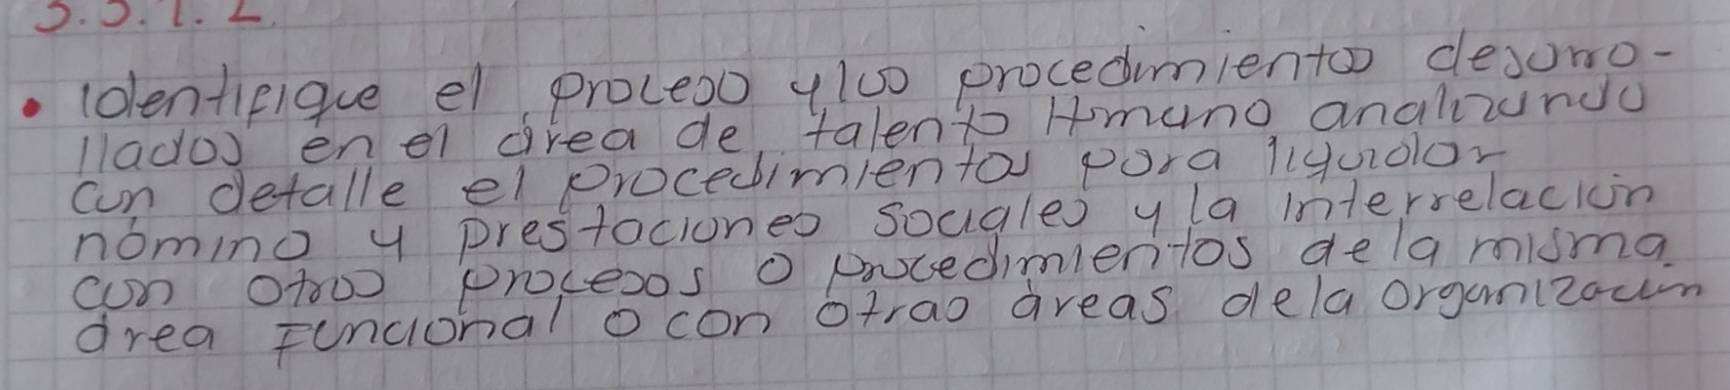 3.3.1.2.
• Identifique el proceso y los procedimientos desarro-
llados en el área de talento Humano analizando
con detalle el procedimientos para liquidar
nómina y prestaciones sociales y la interrelación
con otros procesos o procedimientos de la misma
área Funcional o con otras áreas de la organización